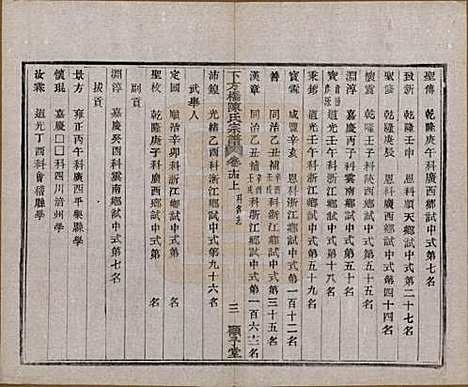 聖傳 乾隆庚午科廣西鄉試中式第七名
致新 乾隆壬申 恩科順天鄉試中式第二十七名
聖脩 乾隆庚辰 恩科廣西鄉試中式第四十四名
懷震 乾隆壬子科陝西鄉試中式第五十四名
淵淳 嘉慶丙子科雲南鄉試中式第五十九名
道光壬午科廣西鄉試中式第十八名
秉鈞 道光壬午 科浙江鄉試中式第五十九名
寳霖 咸豐辛亥 恩科浙江鄉試中式第一百十二名
善 同治乙丑補 科浙江鄉試中式第三十五名
漢章 同治乙丑補 科浙江鄉試中式第一百六十三名
沛鍠 光緒乙酉科浙江鄉試中式第九十六名
武舉人
下方橋陳氏宗譜 卷十四上 三 顯子堂
定國 順治辛卯科浙江鄉試中式第 名
聖枚 乾隆庚子科廣西鄉試中式第 名
副貢
淵淳 嘉慶癸酉科雲南鄉試中式第七名
拔貢
景方 雍正丙午科廣西平樂縣學
懷珉 嘉慶 科四川涪州學
汝霖 道光丁酉科會稽縣學